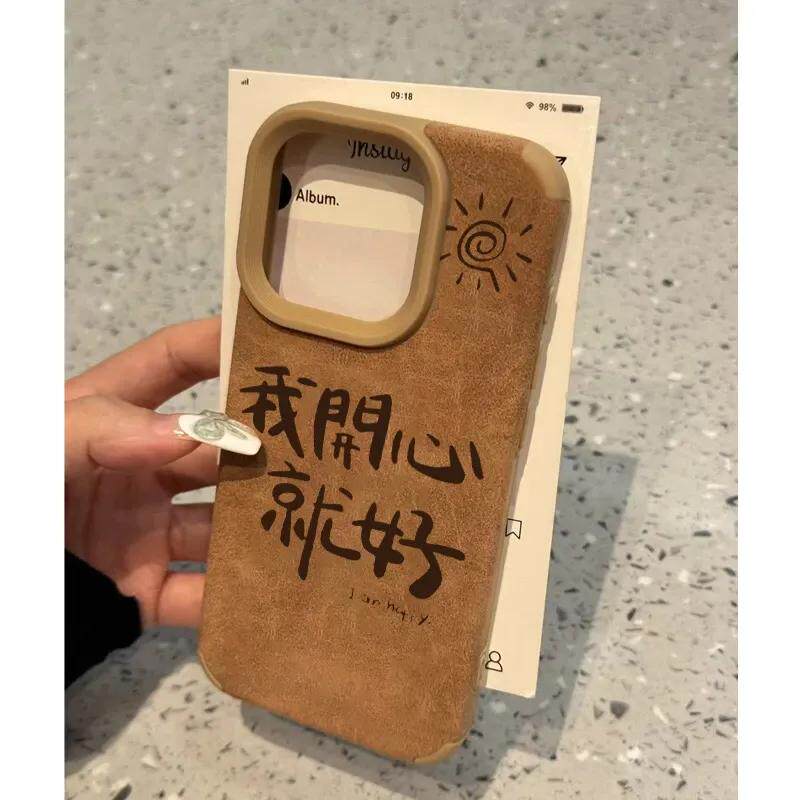 09:18
98%
Album.
我開心
就好
I am happy.